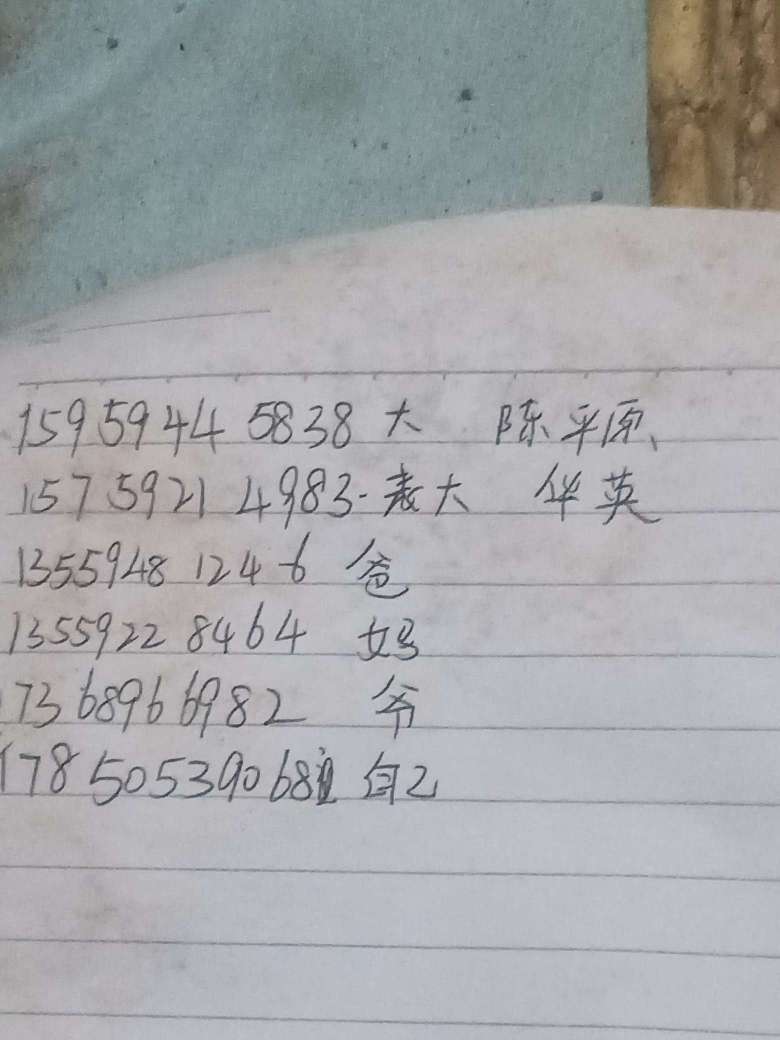 15959445838 大 陈平原、
15759214983. 表大 华英
13559481246 爸
13559228464 妈
17368966982 爷
17850539068 自己